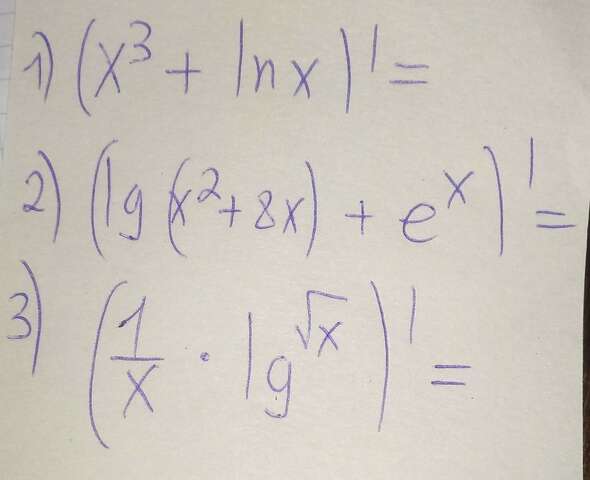 1) (x³ + ln x)' =
2) (lg (x² + 8x) + eˣ)' =
3) (1/x · lg √x)' =